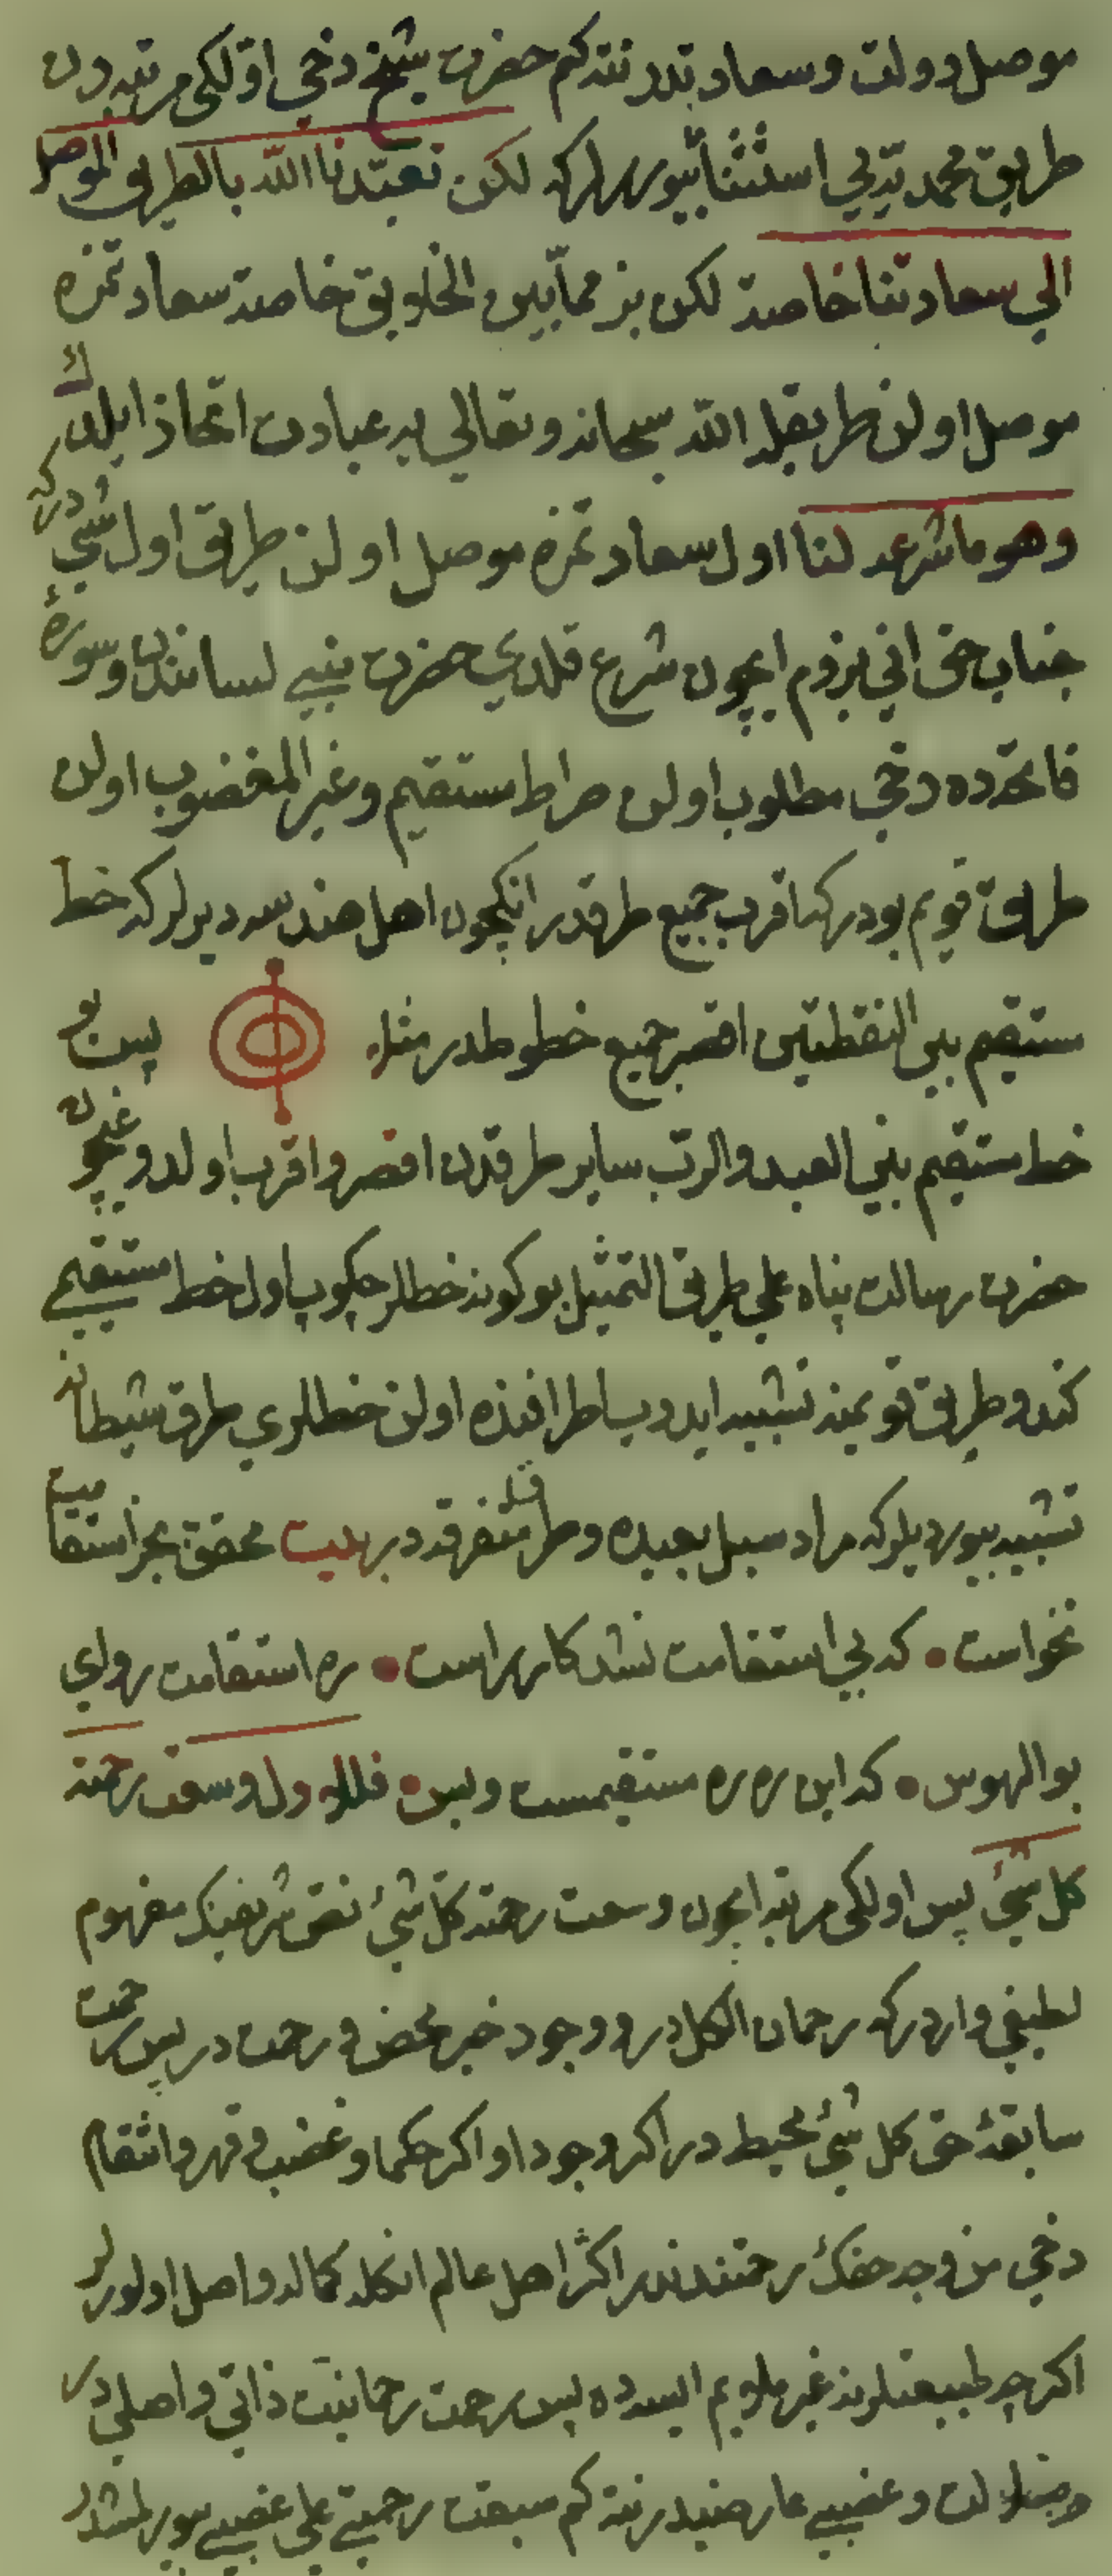 موصل دولت وسعادتدر نته كم حضرت شيخ دخي اولكي مرتبه دن
طريق محمديّه يي استثنا بيوررلر كه لكن تعبّدنا الله بالطريق الموصل
الي سعادتنا خاصة لكن بز مابين الخلايق خاصة سعادتمزه
موصل اولن طريقله الله سبحانه وتعالي يه عبادت اتخاذ ايلدك
وهو ما شرعه لنا اول سعادتمزه موصل اولن طريق اول شي دركه
جناب حق اني بزوم ايچون شرع قلدي حضرت نبي لسانندن وسورۀ
فاتحه ده دخي مطلوب اولن صراط مستقيم وغير المغضوب اولن
طريق قويم بودر كه اقرب جميع طرقدر انكچون اهل هندسه ديرلر كه خط
مستقيم بين النقطتين اقصر جميع خطوطدر مثلا پس بو
خط مستقيم بين العبد والرب ساير طرقدن اقصر واقرب اولدوغيچون
حضرت رسالت پناه علي طريق التمثيل بوكونه خطلر چكوب اول خط مستقيمي
كندو طريق قويمنه تشبيه ايدوب اطرافنده اولن خطلري طرق شيطانه
تشبيه بيورديلر كه مراد سبل بعيده وطرق متفرقه در بيت محقق بجز استقامت
نخواست • كه بي استقامت نشد كار راست • ره استقامت رواي
بوالهوس • كه اين ره ره مستقيمست وبس • فللاول وسعت رحمته
كل شيء پس اولكي مرتبه ايچون وسعت رحمته كل شيء نص شريفينك مفهوم
لطيفي واردر كه رحمان الكلدر و وجود خير محض و رحمت در پس رحمت
سابقۀ حق كل شيء محيط در اكر وجودا واكر حكما وغضب وقهر وانتقام
دخي من وجه حقك رحمتندندر اكثر اهل عالم انكله كماله واصل اولورلر
اكرچه طبيعتلرينه غير ملايم ايسه ده پس رحمت رحمانيت ذاتي واصلي در
وضلالت وغضبي عارضيدر نته كم سبقت رحمتي علي غضبي بيورلمشدر